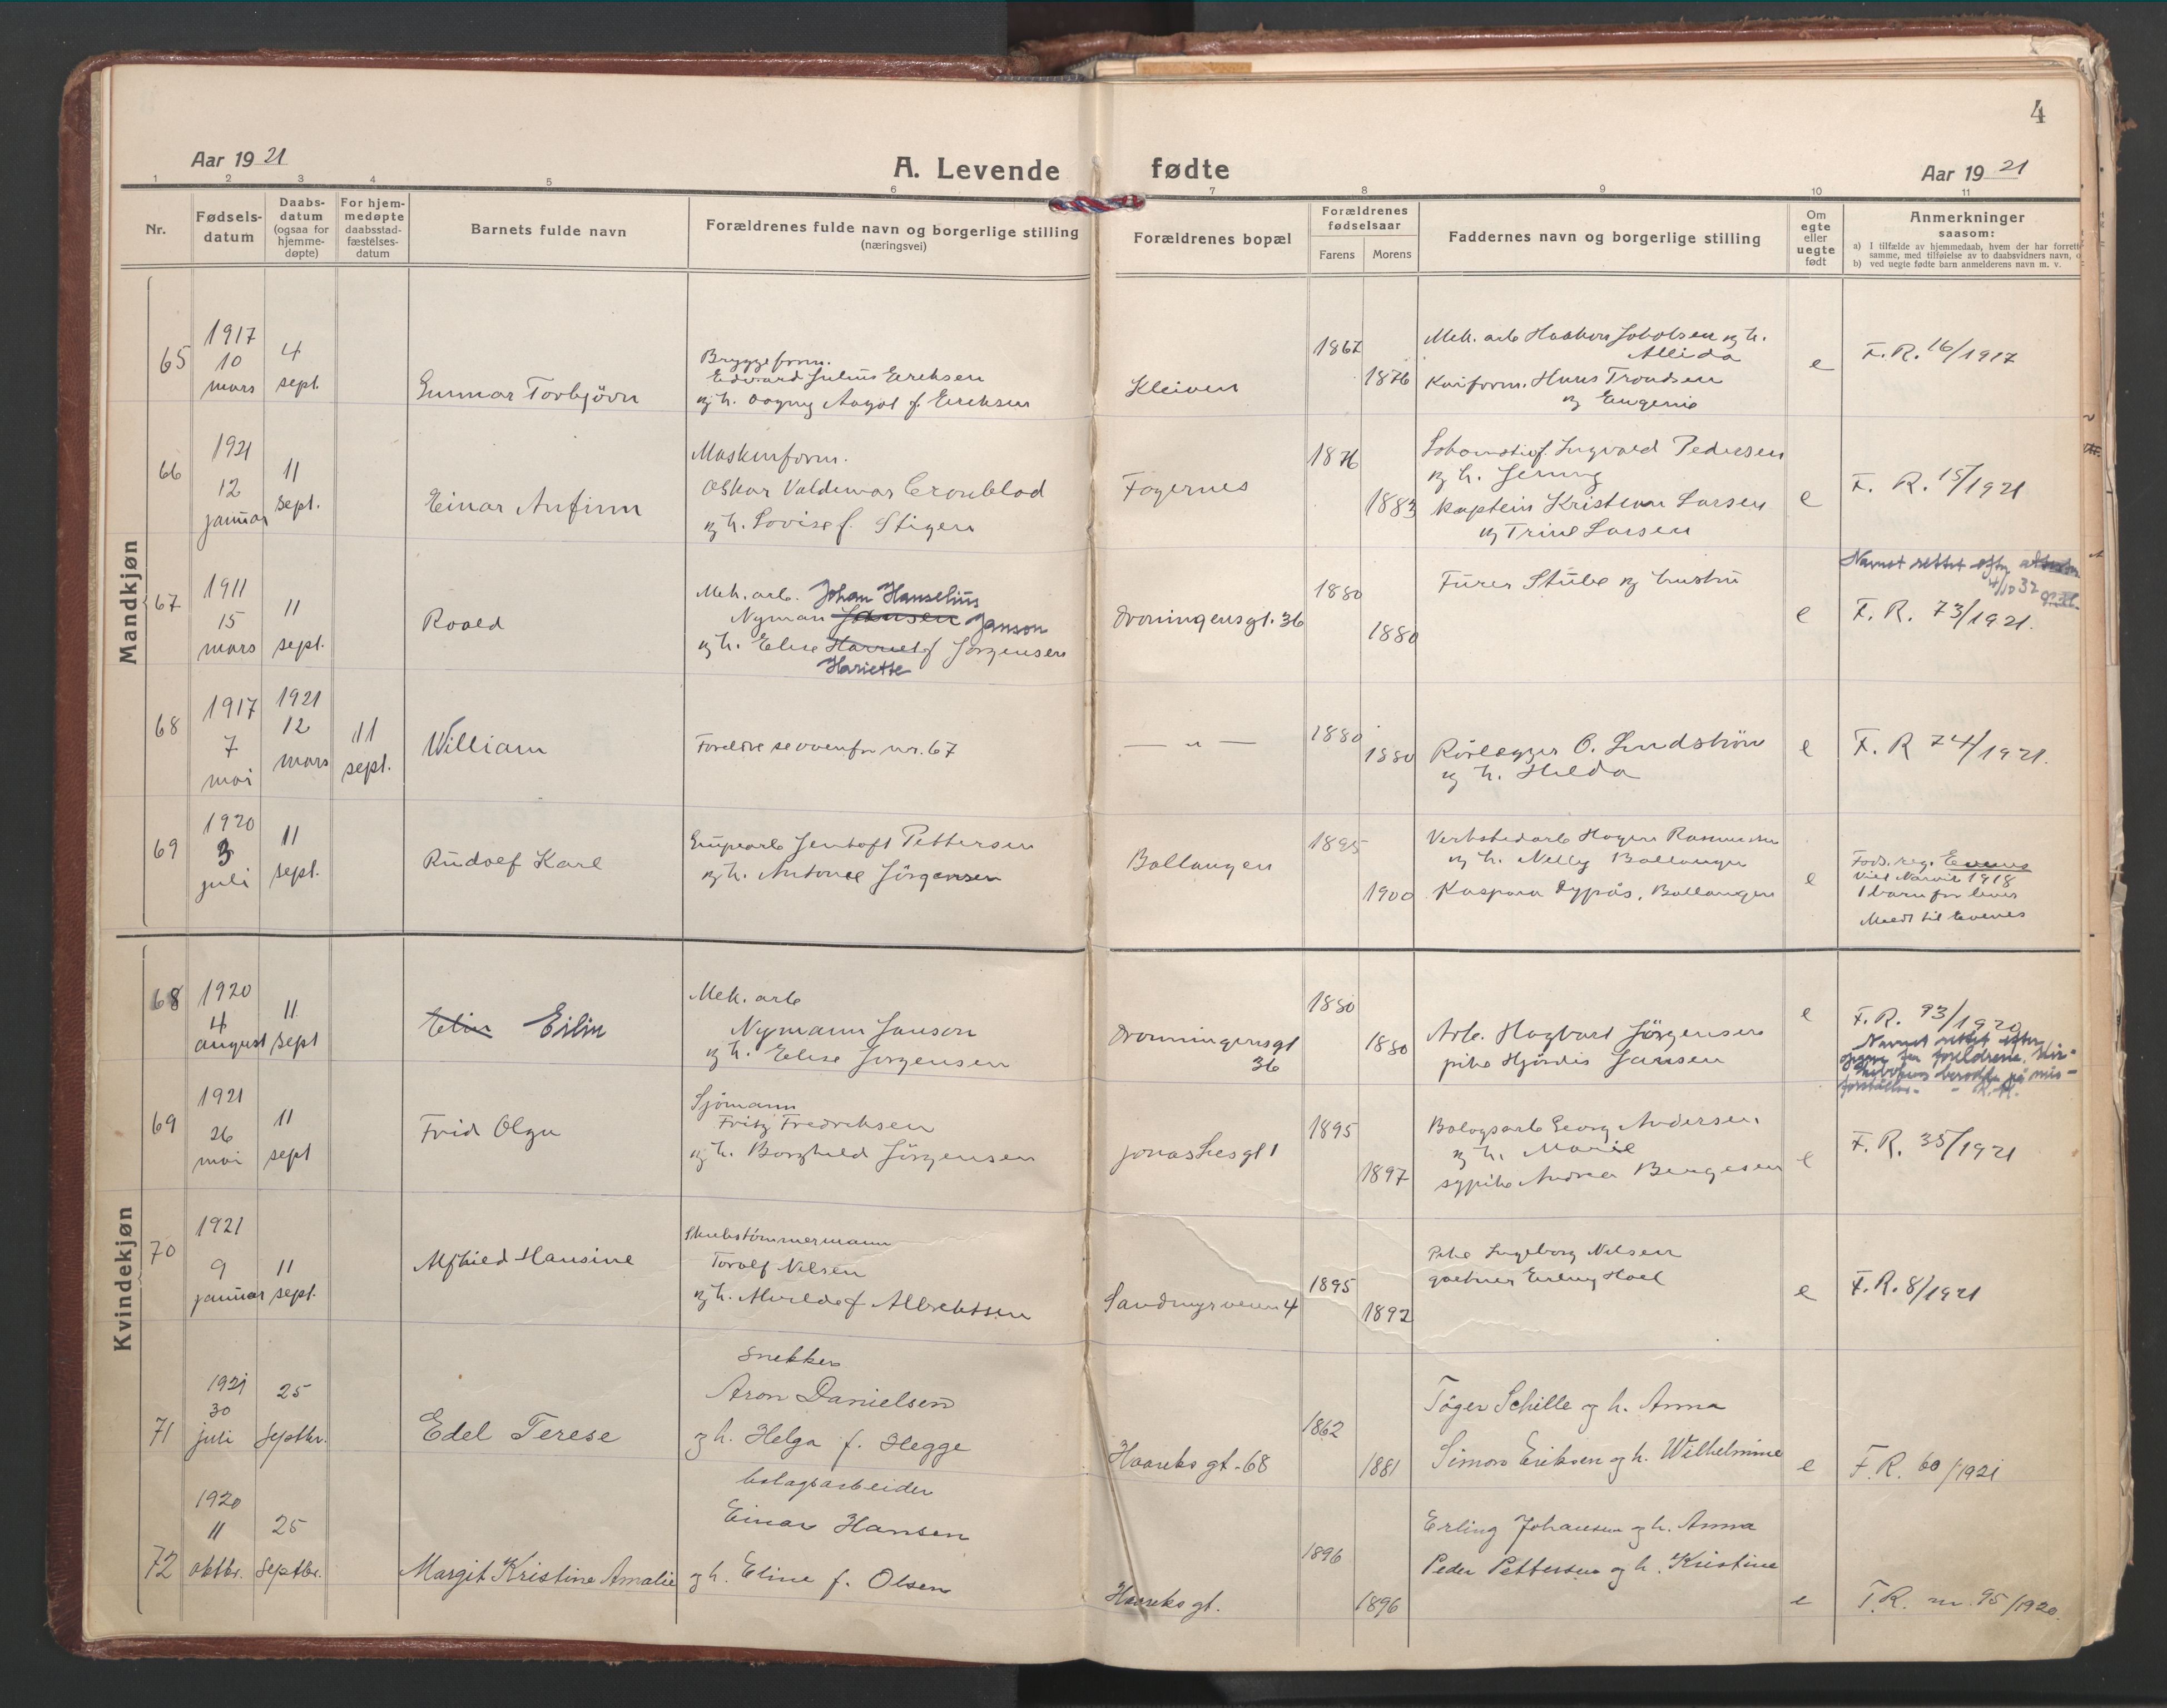 4
Aar 1921
A. Levende fødte
Aar 1921
1 2 3 4 5 6 7 8 9 10 11
Nr.
Fødsels-
datum
Daabs-
datum
(ogsaa for
hjemme-
døpte)
For hjem-
medøpte
daabsstad-
fæstelses-
datum
Barnets fulde navn
Forældrenes fulde navn og borgerlige stilling
(næringsvei)
Forældrenes bopæl
Forældrenes
fødselsaar
Farens
Morens
Faddernes navn og borgerlige stilling
Om
egte
eller
uegte
født
Anmerkninger
saasom:
a) I tilfælde av hjemmedaab, hvem der har forrett
samme, med tilføielse av to daabsvidners navn, o
b) ved uegte fødte barn anmelderens navn m. v.
Mandkjøn
65
1917
10
mars
4
sept.
Gunnar Torbjörn
Bryggeform.
Edward Julius Eriksen
og h. Dagny Aagot f. Eriksen
Kleiven
1867
1876
Mek. arb Haakon Jakobsen og h.
Allida
Kaiform. Hans Trondsen
og Eugenie
e
F.R. 16/1917
66
1921
12
januar
11
sept.
Einar Anfinn
Maskinform.
Oskar Valdemar Cronblad
og h. Lovise f. Stigen
Fagernes
1876
1883
Ingvald Pedersen
og h. Jenny
Kaptein Kristian Larsen
og Trine Larsen
e
F. R. 15/1921
67
1911
15
mars
11
sept.
Roald
Mek. arb. Johan Hanselius
Nyman Jansen Janson
og h. Elise Harriet f Jörgensen
Hariette
Dronningensgt. 36
1880
1880
Furer Stübe og hustru
e
Navnet rettet efter
4/10 32
F. R. 73/1921.
68
1917
7
mai
1921
12
mars
11
sept.
William
Foreldre se ovenfor nr. 67
— " —
1880
1880
Rörlegger O. Lundström
og h. Hilda
e
F. R 74/1921.
69
1920
3
juli
11
sept.
Rudolf Karl
Grupearb Jentoft Pettersen
og h. Antonie Jörgensen
Ballangen
1895
1900
Verkstedarb Hagen Rasmussen
og h. Nelly Ballangen
Kaspara Dypås, Ballangen
e
Föds. reg. Evenes
Viet Narvik 1918
1 barn för lever
Meldt til Evenes
Kvindekjøn
68
1920
4
august
11
sept
Elin Eilin
Mek. arb
Nymann Janson
og h. Elise Jörgensen
Dronningensgt
36
1880
1880
Arb. Hagbart Jörgensen
pike Hjördis Jansen
e
F. R. 93/1920
Navnet rettet efter
opgave fra foreldrene. Kir-
kebokens berodde på mis-
forståelse.
69
1921
26
mai
11
sept
Frid Olga
Sjömann
Fritz Fredriksen
og h. Borghild Jörgensen
Jonas Liesgt 1
1895
1897
Bolagsarb Georg Andersen
og h. Marie
sypike Andrea Bergesen
e
F. R. 35/1921
70
1921
9
januar
11
sept.
Alfhild Hansine
Skibstömmermann
Torolf Nilsen
og h. Alvilde f Albrektsen
Sandmyrveien 4
1895
1892
Pike Ingeborg Nilsen
gartner Erling Hoel
e
F. R. 8/1921
71
1921
30
juli
25
septbr.
Edel Terese
Snekker
Aron Danielsen
og h. Helga f. Hegge
Haareks gt. 68
1862
1881
Töger Schille og h. Anna
Simon Eriksen og h. Wilhelmine
e
F. R. 60/1921
72
1920
11
oktbr.
25
septbr.
Margit Kristine Amalie
bolagsarbeider
Einar Hansen
og h. Eline f. Olsen
Haareks gt.
1896
1896
Erling Johansen og h. Anna
Peder Pettersen og h. Kristine
e
F. R. nr. 95/1920.